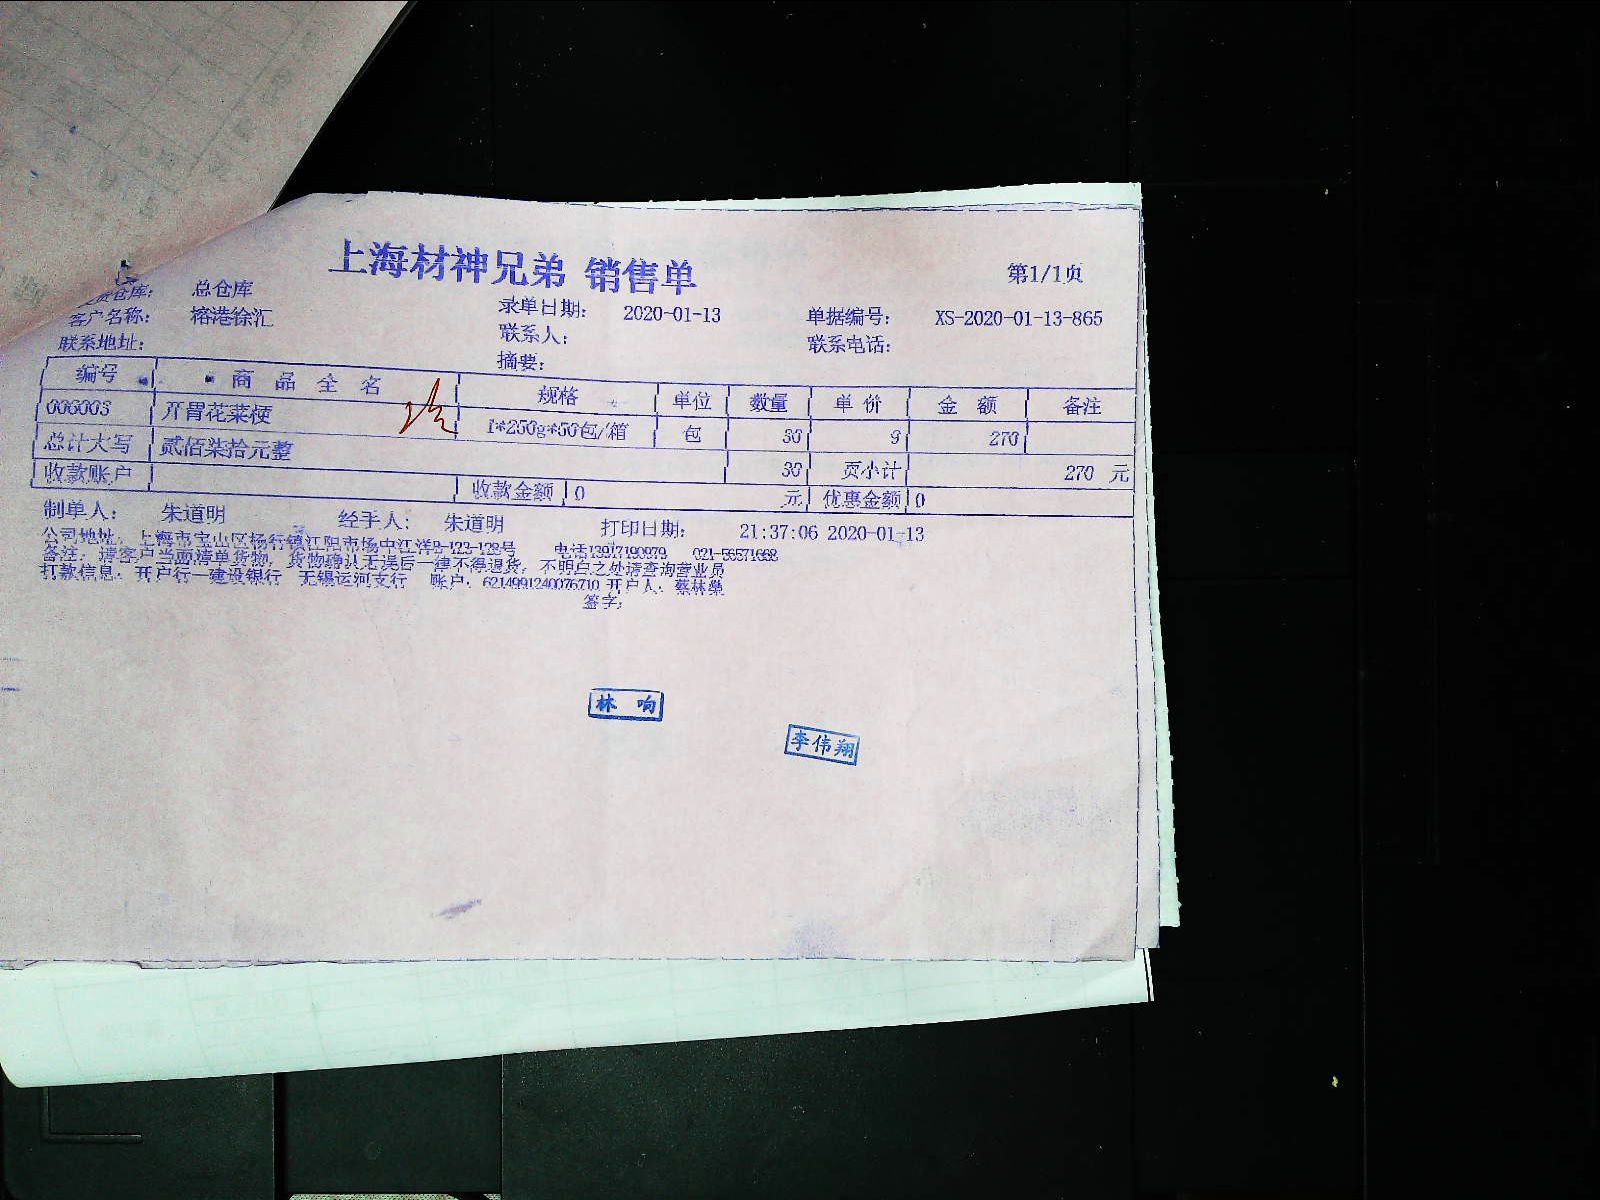 上海材神兄弟 销售单
第1/1页
仓库： 总仓库
客户名称： 榕港徐汇 录单日期： 2020-01-13 单据编号： XS-2020-01-13-865
联系地址： 联系人： 联系电话：
摘要：
编号 商品全名 规格 单位 数量 单价 金额 备注
006003 开胃花菜梗 1*250g*50包/箱 包 30 9 270
总计大写 贰佰柒拾元整 30 页小计 270 元
收款账户 收款金额 0 元 优惠金额 0
制单人： 朱道明 经手人： 朱道明 打印日期： 21:37:06 2020-01-13
公司地址：上海市宝山区杨行镇江阳市场中江洋B-123-128号 电话13917190979 021-56571668
备注：请客户当面清单货物，货物确认无误后一律不得退货，不明白之处请查询营业员
打款信息：开户行一建设银行 无锡运河支行 账户：6214991240076710 开户人：蔡林燊
签字：
林响
李伟翔